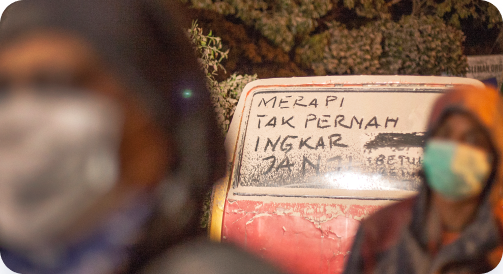 MERAPI
TAK PERNAH
INGKAR
JANJI